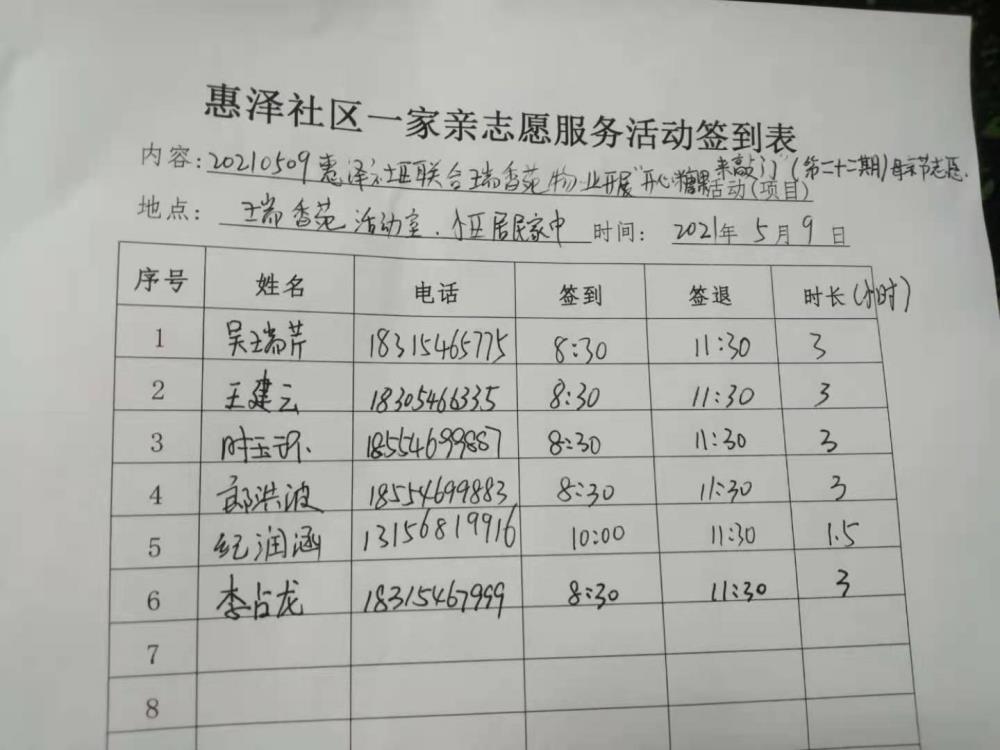 惠泽社区一家亲志愿服务活动签到表
内容:20210509惠泽社区联合瑞香苑物业开展"开心糖果来敲门"(第二十二期)母亲节志愿活动(项目)
地点: 瑞香苑活动室.小区居民家中 时间: 2021年5月9日
序号 姓名 电话 签到 签退 时长(小时)
1 吴瑞芹 18315465775 8:30 11:30 3
2 王建云 18305466335 8:30 11:30 3
3 时玉 18554699887 8:30 11:30 3
4 郭洪波 18554699883 8:30 11:30 3
5 纪润涵 13156819916 10:00 11:30 1.5
6 李占龙 18315467999 8:30 11:30 3
7
8